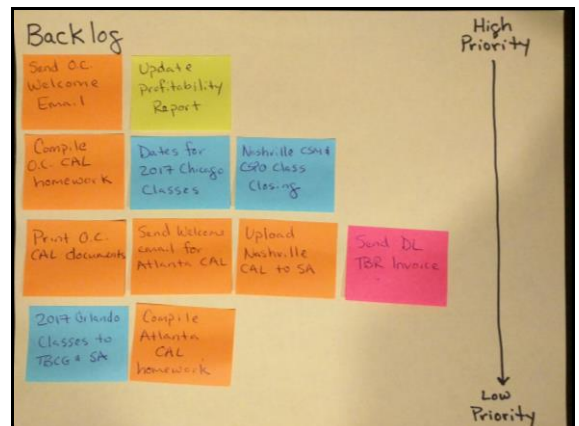 Backlog
High
Priority
Send O.C.
Welcome
Email
Update
profitability
Report
Compile
O.C. CAL
homework
Dates for
2017 Chicago
Classes
Nashville CSM &
CSPO Class
Closing
Print O.C.
CAL documents
Send Welcome
email for
Atlanta CAL
Upload
Nashville
CAL to SA
Send DL
TBR Invoice
2017 Orlando
Classes to
TBCG & SA
Compile
Atlanta
CAL
homework
Low
Priority